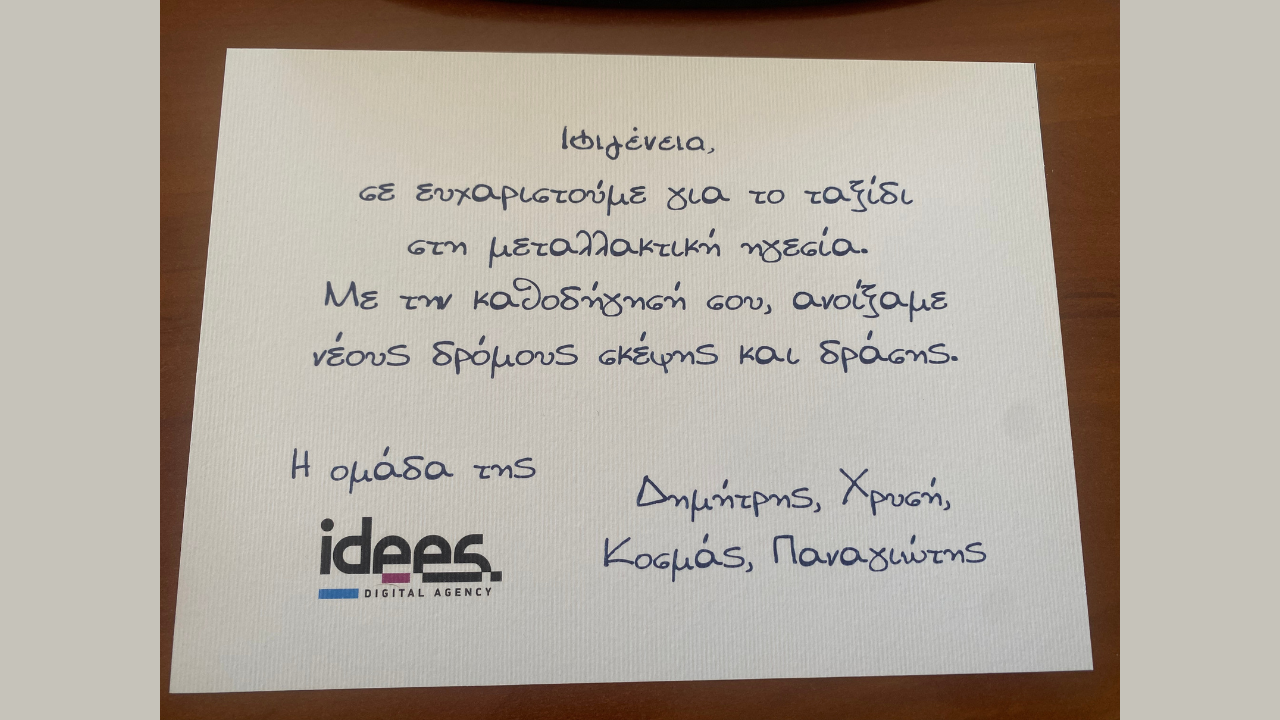 Ιφιγένεια,
σε ευχαριστούμε για το ταξίδι
στη μεταλλακτική ηγεσία.
Με την καθοδήγησή σου, ανοίξαμε
νέους δρόμους σκέψης και δράσης.
Η ομάδα της
idees.
DIGITAL AGENCY
Δημήτρης, Χρυσή,
Κοσμάς, Παναγιώτης